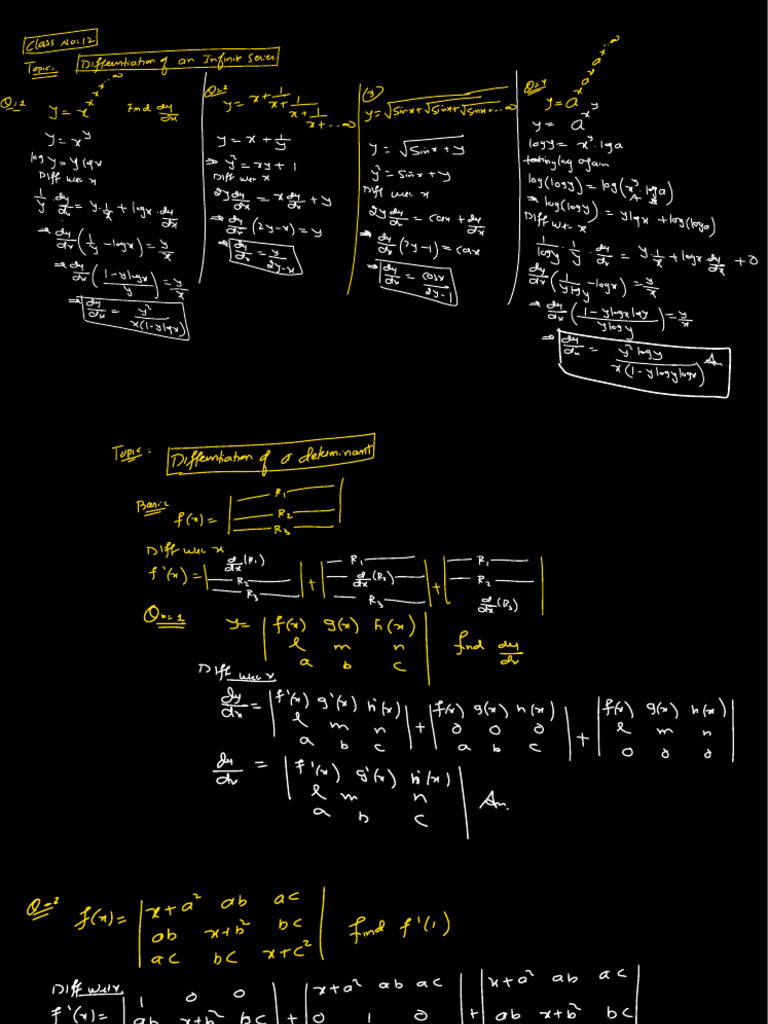 Class No:12
Topic: Differentiation of an Infinit Series
Q=1 y = x^x^x^...∞ Find dy/dx
y = x^y
log y = y log x
Diff w.r. x
1/y · dy/dx = y · 1/x + log x · dy/dx
⇒ dy/dx (1/y − log x) = y/x
⇒ dy/dx ((1 − y log x)/y) = y/x
⇒ dy/dx = y²/(x(1 − y log x))
Q=2 y = x + 1/(x + 1/(x + 1/(x + ...∞)))
y = x + 1/y
⇒ y² = xy + 1
Diff w.r. x
2y dy/dx = x dy/dx + y
⇒ dy/dx (2y − x) = y
⇒ dy/dx = y/(2y − x)
(3) y = √(sin x + √(sin x + √(sin x ...∞)))
y = √(sin x + y)
y² = sin x + y
Diff w.r. x
2y dy/dx = cos x + dy/dx
⇒ dy/dx (2y − 1) = cos x
⇒ dy/dx = cos x/(2y − 1)
Q=4 y = a^x^a^x^...∞
y = a^x^y
log y = x^y · log a
taking log again
log(log y) = log(x^y · log a)
⇒ log(log y) = y log x + log(log a)
Diff w.r. x
1/log y · 1/y · dy/dx = y · 1/x + log x · dy/dx + 0
dy/dx (1/(y log y) − log x) = y/x
⇒ dy/dx ((1 − y log x log y)/(y log y)) = y/x
⇒ dy/dx = y² log y/(x(1 − y log y log x)) An
Topic: Differentiation of a determinant
Basic f(x) = | R₁ R₂ R₃ |
Diff w.r. x
f'(x) = | d/dx(R₁) R₂ R₃ | + | R₁ d/dx(R₂) R₃ | + | R₁ R₂ d/dx(R₃) |
Qn=1 y = | f(x) g(x) h(x) |
l m n find dy/dx
a b c
Diff w.r. x
dy/dx = | f'(x) g'(x) h'(x) | + | f(x) g(x) h(x) | + | f(x) g(x) h(x) |
l m n 0 0 0 l m n
a b c a b c 0 0 0
dy/dx = | f'(x) g'(x) h'(x) |
l m n An.
a b c
Q=2 f(x) = | x+a² ab ac |
ab x+b² bc find f'(1)
ac bc x+c²
Diff w.r.x
f'(x) = | 1 0 0 | + | x+a² ab ac | + | x+a² ab ac |
ab x+b² bc 0 1 0 ab x+b² bc